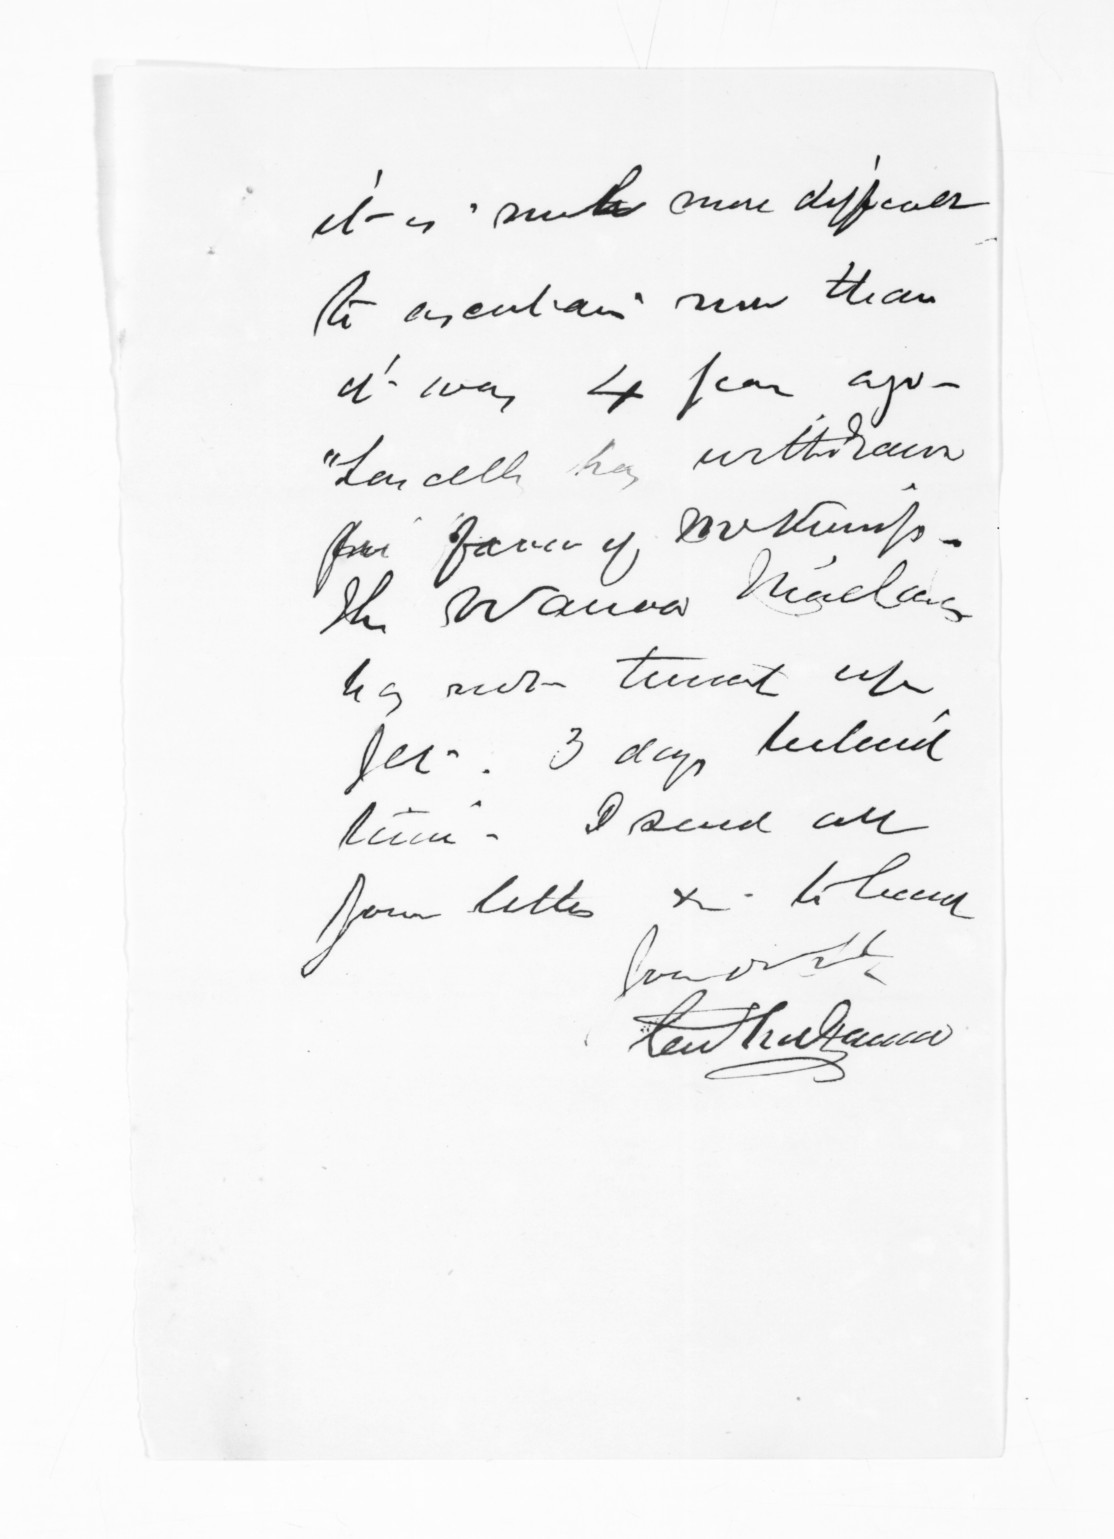 it is much more difficult
to ascertain now than
it was 4 years ago -
"Lascelles has withdrawn
in favor of
The Wanaka
has not turned up
yet. 3 days behind
time - I send all
your letters &c - to hand
Yours